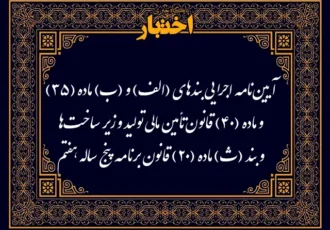 اختبار
آیین‌نامه اجرایی بندهای (الف) و (ب) ماده (۳۵)
و ماده (۴۰) قانون تأمین مالی تولید و زیرساخت‌ها
و بند (ث) ماده (۲۰) قانون برنامه پنج ساله هفتم